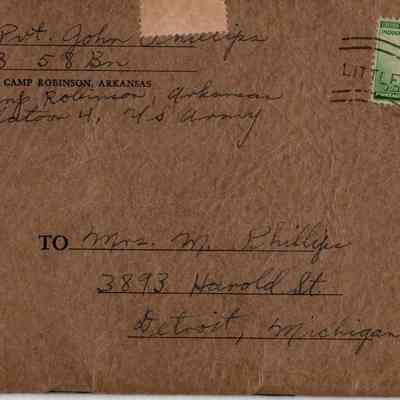 Pvt. John Phillips
58 Bn
CAMP ROBINSON, ARKANSAS
Robinson, Arkansas
4, US Army
LITTLE
TO Mrs. M. Phillips
3893 Harold St
Detroit, Michigan